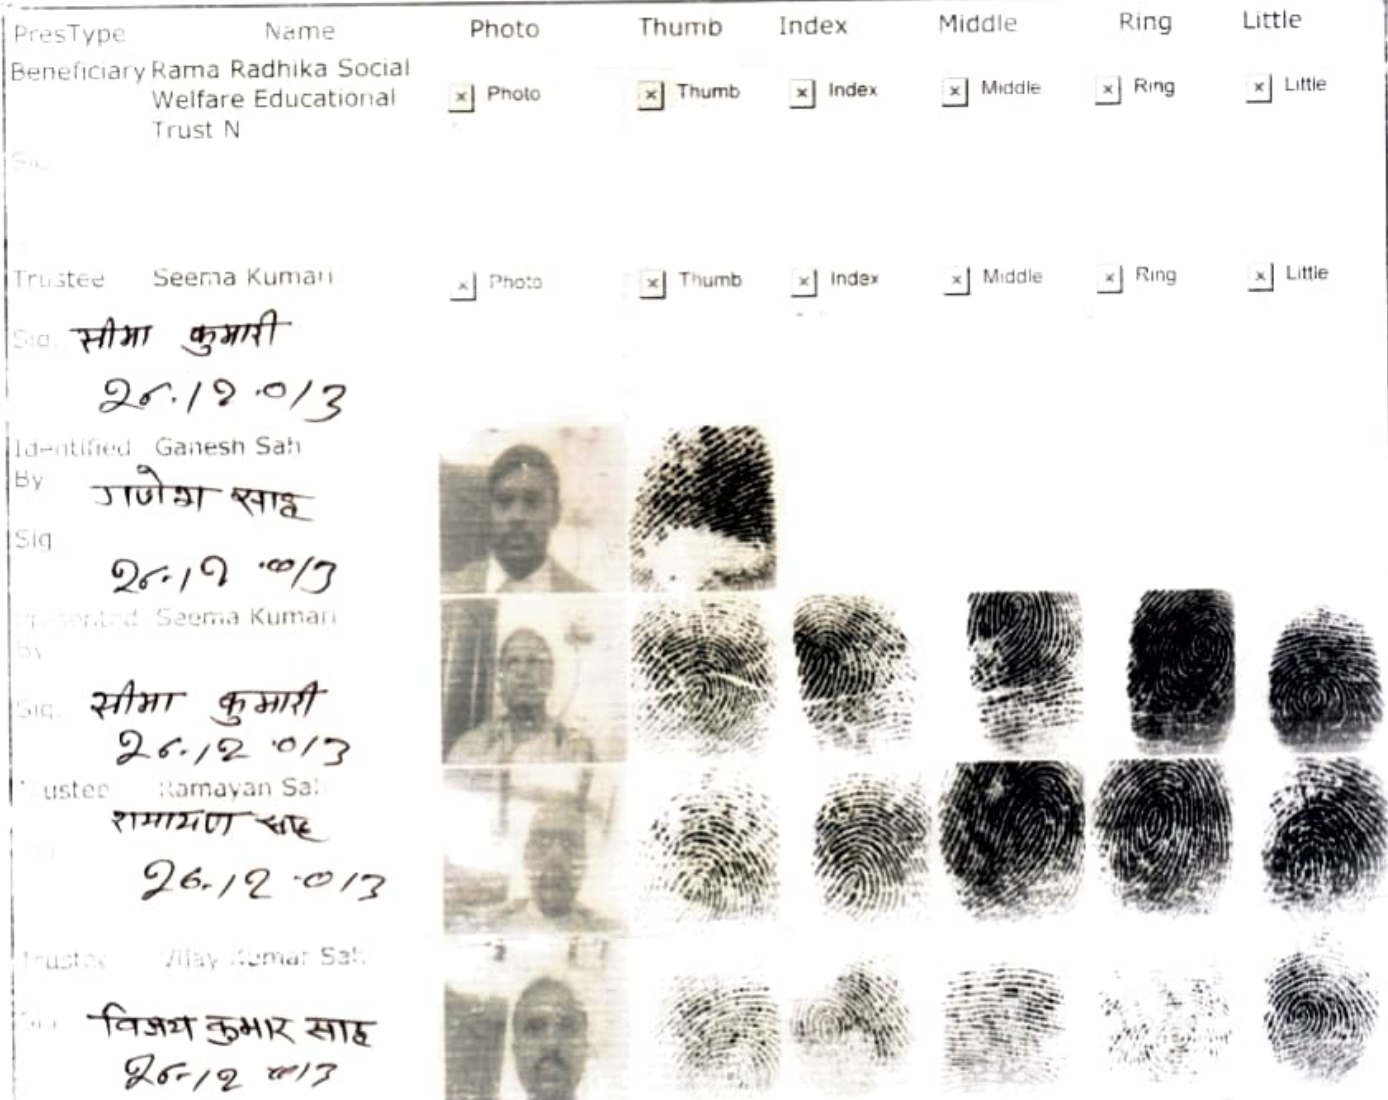 PresType Name Photo Thumb Index Middle Ring Little
Beneficiary Rama Radhika Social
Welfare Educational
Trust N
Photo Thumb Index Middle Ring Little
Sig.
Trustee Seema Kumari Photo Thumb Index Middle Ring Little
Sig. सीमा कुमारी
26.12.013
Identified Ganesh Sah
By
गणेश साह
Sig
26.12.013
Presented Seema Kumari
By
Sig. सीमा कुमारी
26.12.013
Trustee Ramayan Sah
रामायण साह
26.12.013
Trustee Vijay Kumar Sah
विजय कुमार साह
26.12.013